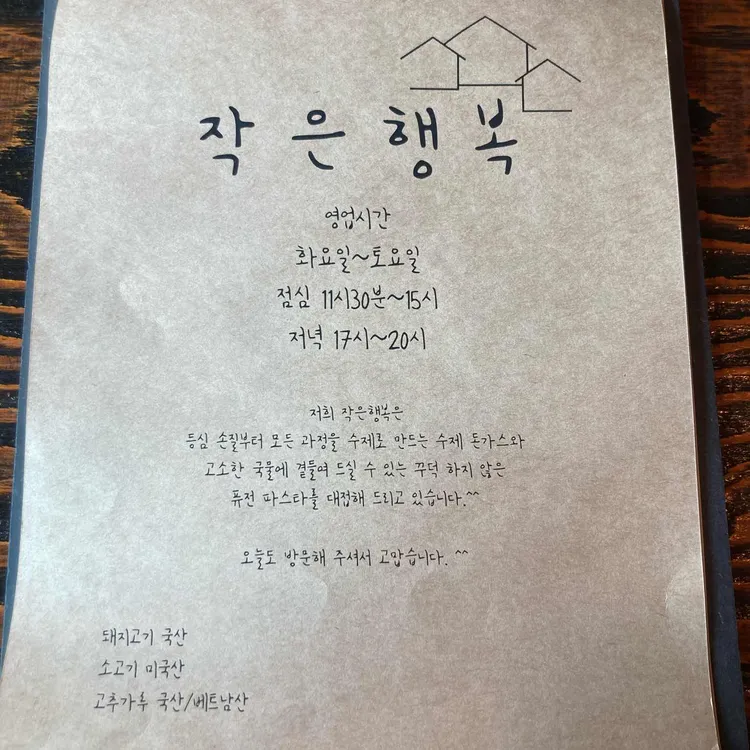 작은행복
영업시간
화요일~토요일
점심 11시30분~15시
저녁 17시~20시
저희 작은행복은
등심 손질부터 모든 과정을 수제로 만드는 수제 돈가스와
고소한 국물에 곁들여 드실 수 있는 꾸덕 하지 않은
퓨전 파스타를 대접해 드리고 있습니다.^^
오늘도 방문해 주셔서 고맙습니다. ^^
돼지고기 국산
소고기 미국산
고추가루 국산/베트남산